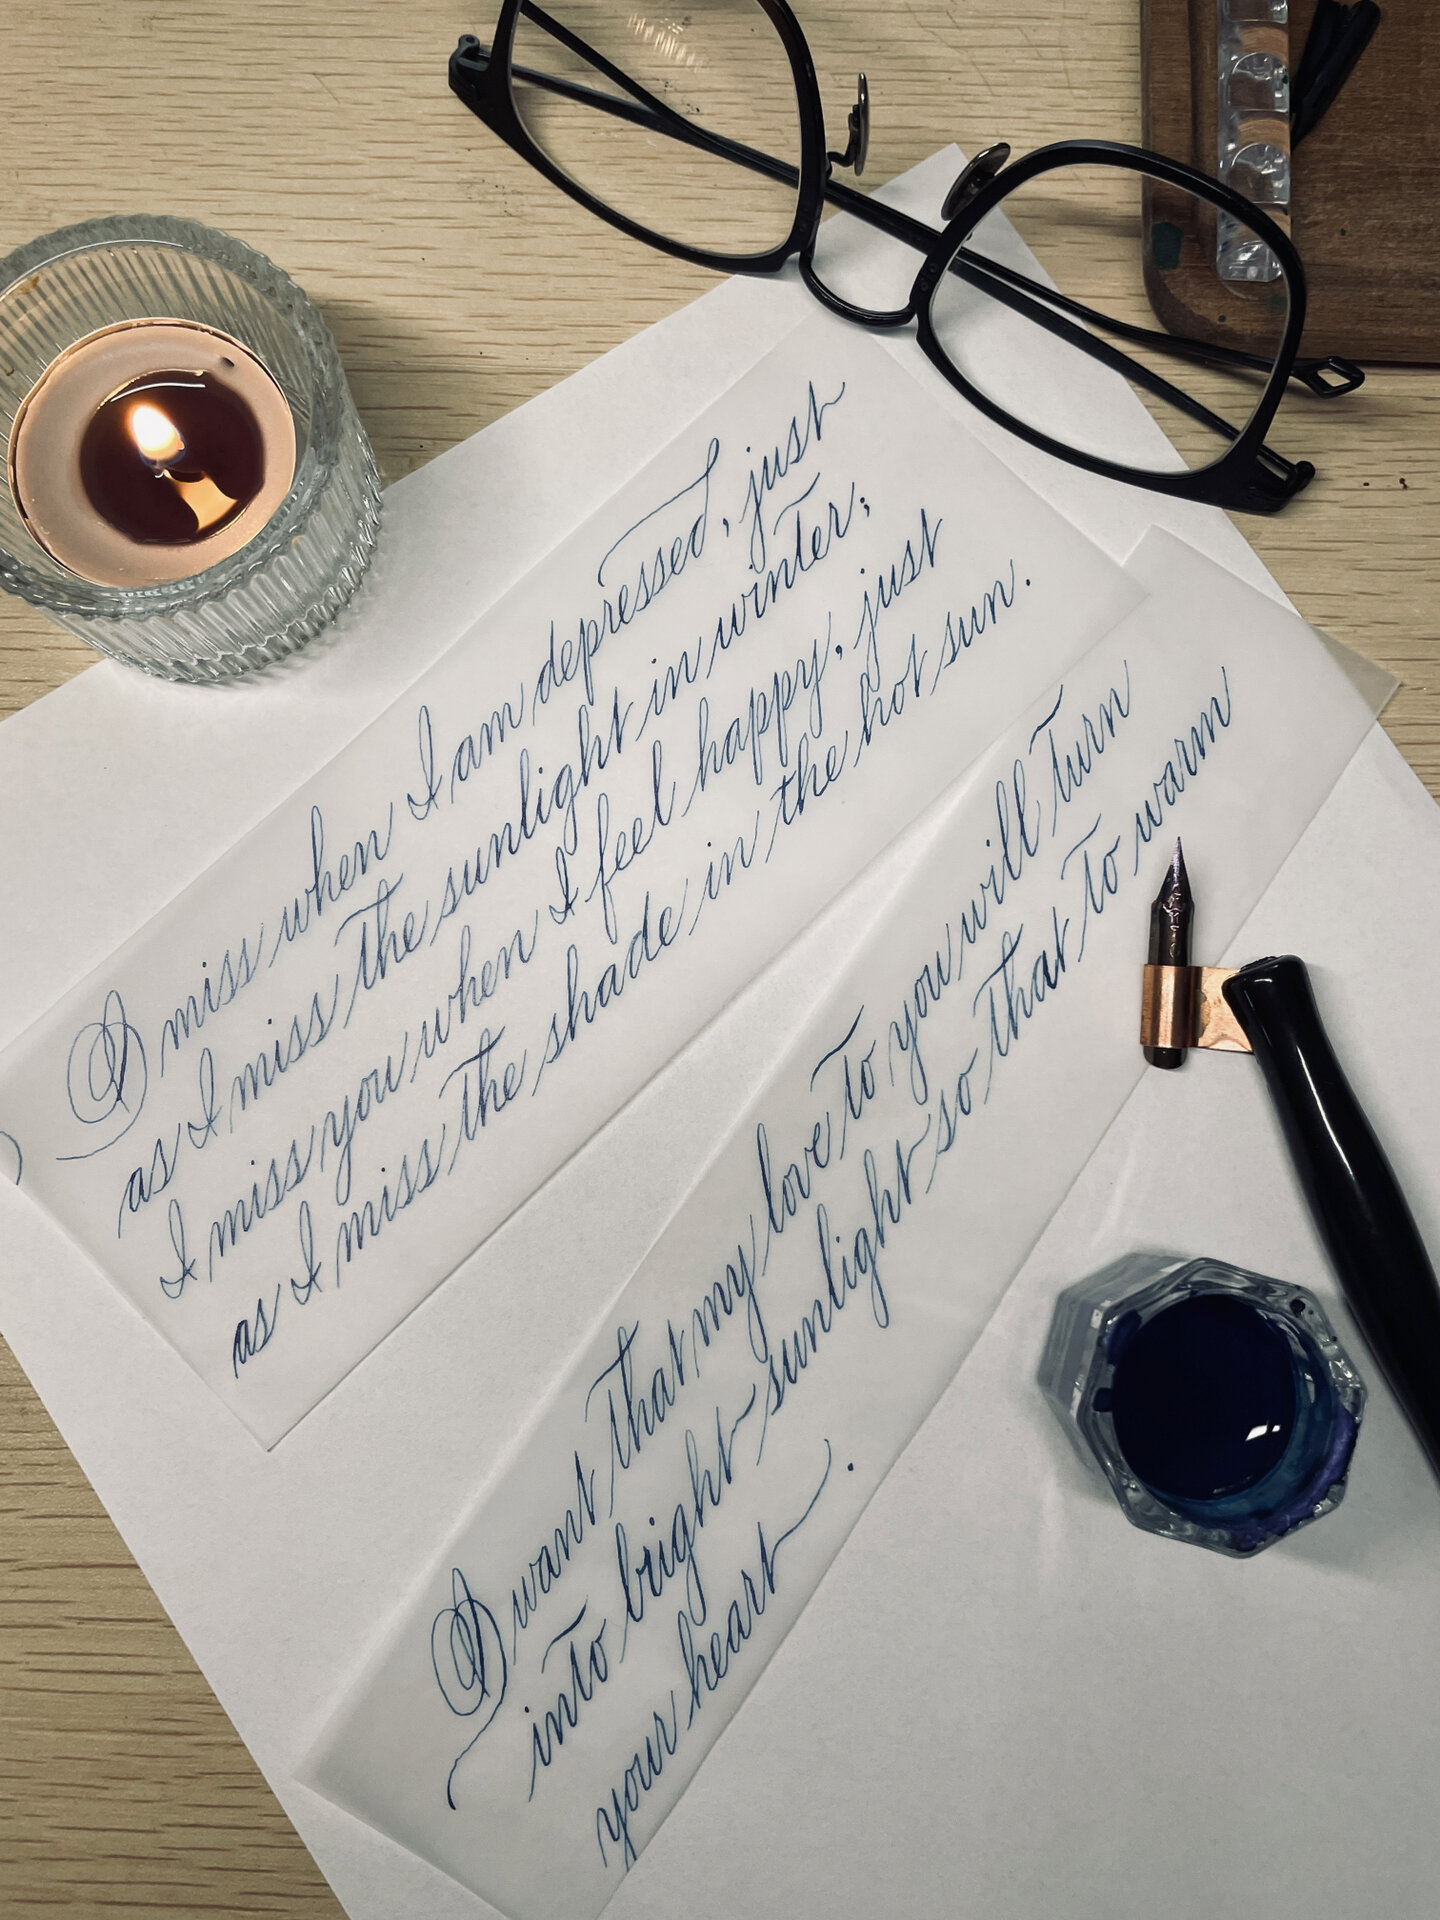 I miss when I am depressed, just
as I miss the sunlight in winter;
I miss you when I feel happy, just
as I miss the shade in the hot sun.
I want that my love to you will turn
into bright sunlight so that to warm
your heart.